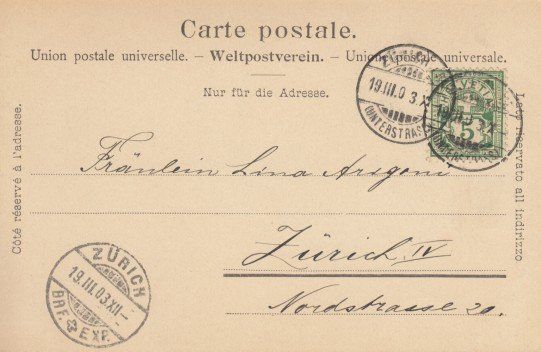 Carte postale.
Union postale universelle. – Weltpostverein. – Unione postale universale.
Nur für die Adresse.
Côté réservé à l'adresse.
Lato riservato all indirizzo
ZÜRICH
19.III.03.X
(UNTERSTRASS)
HELVETIA
5
Fräulein Lina
Zürich IV
Nordstrasse 20.
ZÜRICH
19.III.03.XII–
BRF. EXP.